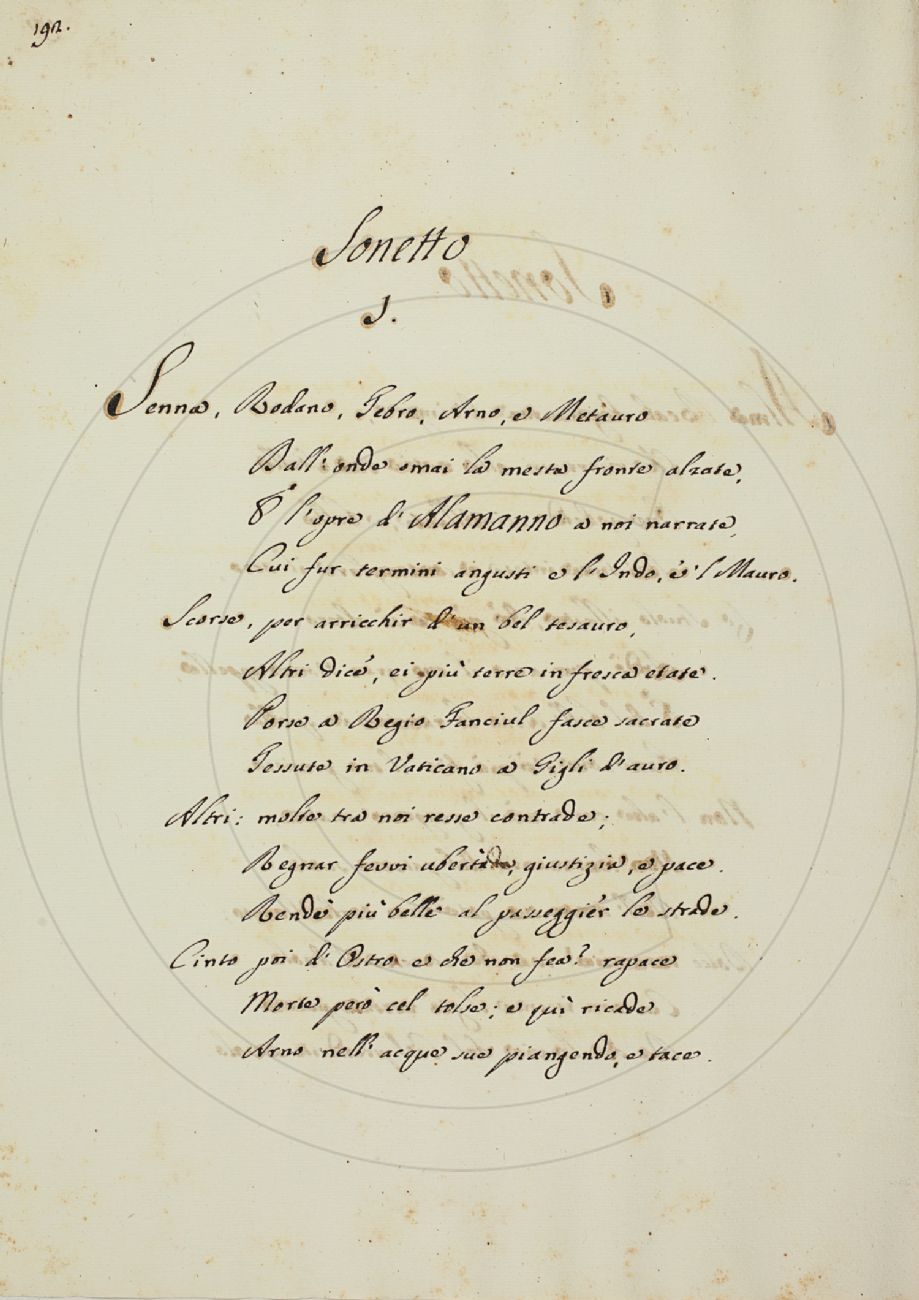 192.
Sonetto
1.
Senna, Rodano, Tebro, Arno, e Metauro
Dall' onde omai la mesta fronte alzate,
E l'opre d' Alamanno a noi narrate,
Cui fur termini angusti e l'Indo, e 'l Mauro.
Scorse, per arricchir d'un bel tesauro,
Altri dicé, ei più terre in fresca etate.
Porse a Regio Fanciul fasce sacrate
Tessute in Vaticano a Gigli d'auro.
Altri: molte tra noi resse contrade;
Regnar fevvi ubertade, giustizia, e pace.
Rendè più belle al passeggiér le strade.
Cinto poi d' Ostro e che non fea? rapace
Morte però cel tolse; e quì ricade
Arno nell' acque sue piangendo, e tace.